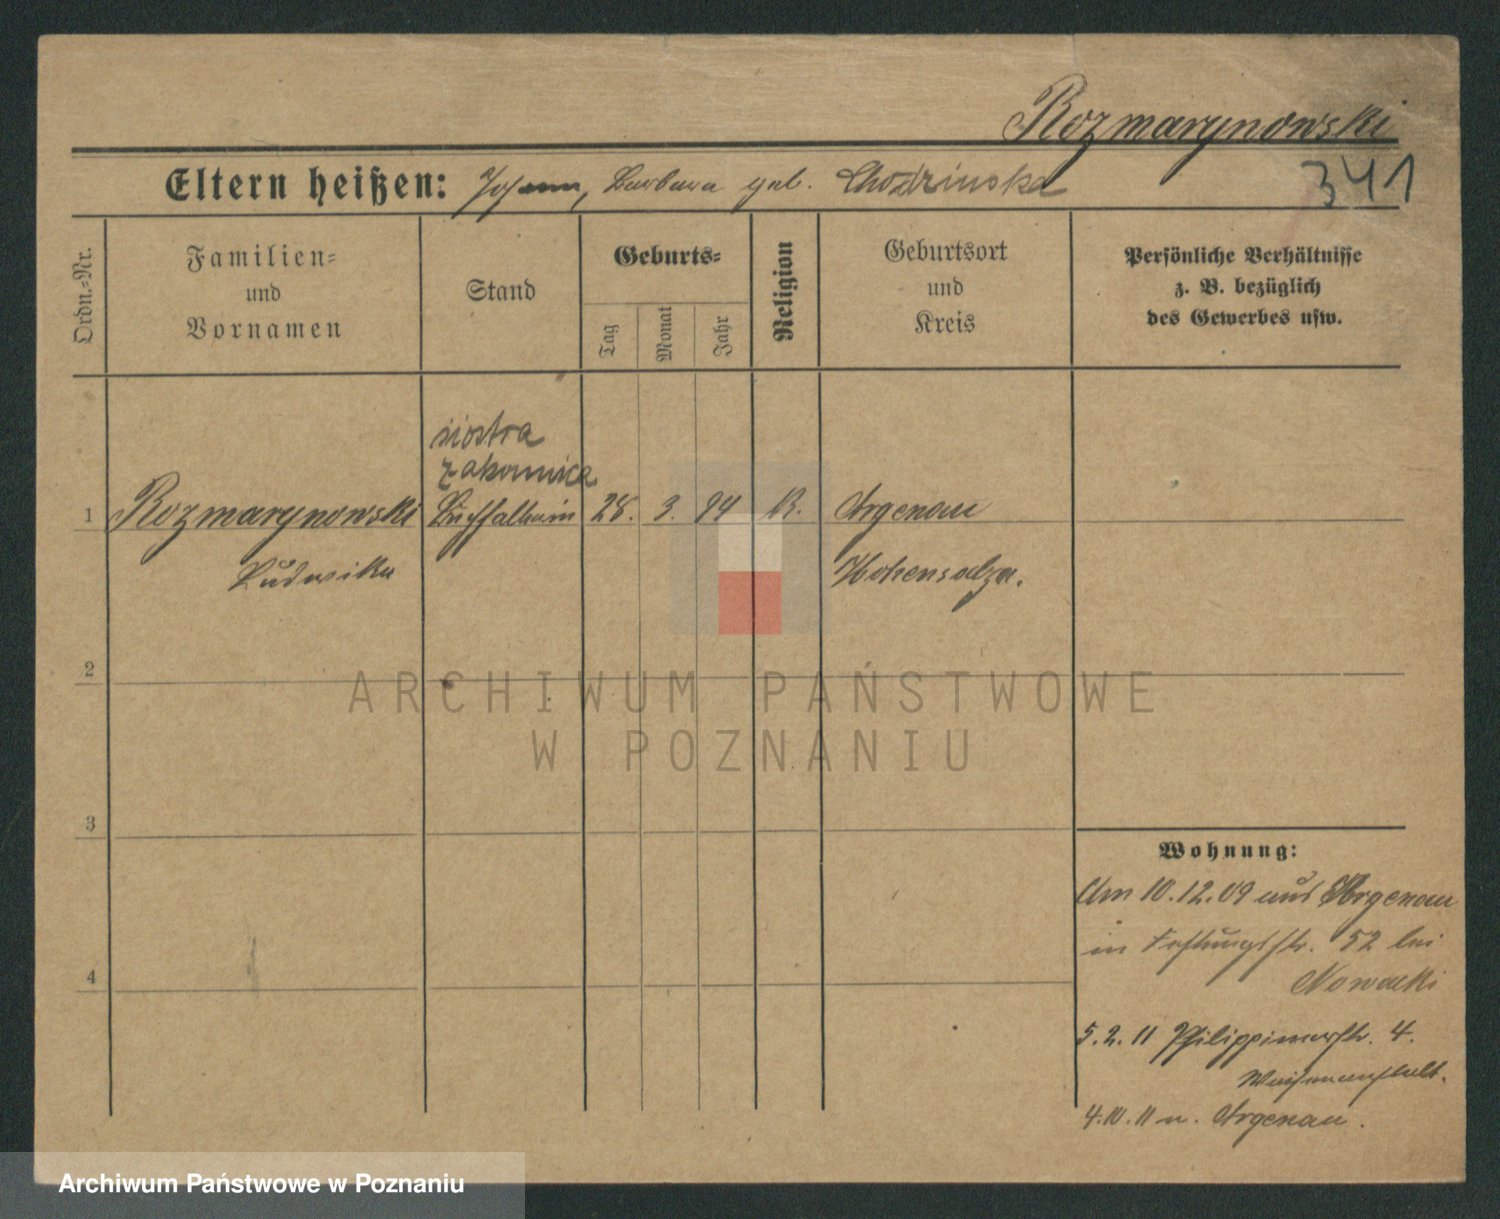 Rozmarynowski
341
Eltern heißen: Johann, Barbara geb. Chodzinska
Ordn.-Nr.
Familien- und Vornamen
Stand
Geburts-
Tag
Monat
Jahr
Religion
Geburtsort und Kreis
Persönliche Verhältnisse
z. B. bezüglich
des Gewerbes usw.
siostra
zakonnica
1 Rozmarynowski Buchhalterin 28. 3. 94 K. Argenau
Ludwika Hohensalza.
2
3
4
Wohnung:
Am 10.12.09 aus Argenau
in Festungsstr. 52 bei
Nowacki
5.2.11 Philippinerstr. 4.
Waisenanstalt.
4.10.11 n. Argenau.
ARCHIWUM PAŃSTWOWE
W POZNANIU
Archiwum Państwowe w Poznaniu